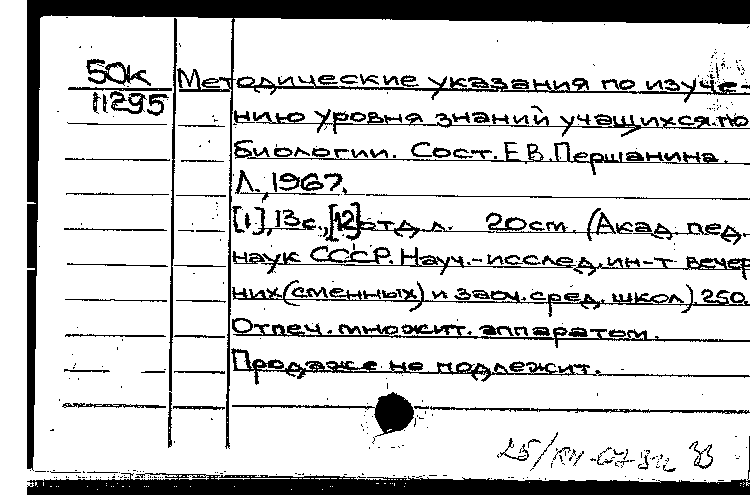 50к
11295
Методические указания по изуче-
нию уровня знаний учащихся по
биологии. Сост. Е.В. Першанина.
Л., 1967.
[1], 13 с., [12] отд. л. 20 cm. (Акад. пед.
наук СССР. Науч.-исслед. ин-т вечер
них (сменных) и заоч. сред. школ) 250.
Отпеч. множит. аппаратом.
Продаже не подлежит.